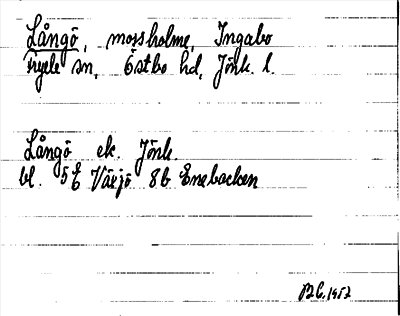 Långö, mossholme, Ingabo
Fryele sn, Östbo hd, Jönk. l.
Långö ek. Jönk.
bl. 5E Växjö 8b Enebacken
1952